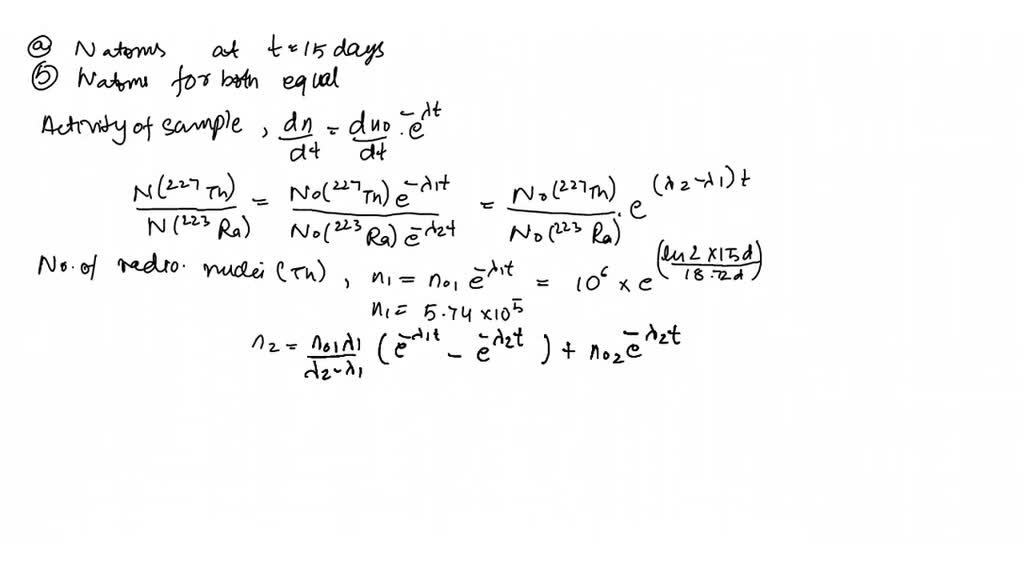 ⓐ N atoms at t = 15 days
ⓑ Natoms for both equal
Activity of sample , dn/dt = dn0/dt . e^-λt
N(²²⁷Th)/N(²²³Ra) = No(²²⁷Th) e^-λ1t / No(²²³Ra) e^-λ2t = No(²²⁷Th)/No(²²³Ra) . e^(λ2-λ1)t
No. of radio. nuclei (Th) , n1 = n01 e^-λ1t = 10⁶ x e^(ln2 x 15d / 18.72d)
n1 = 5.74 x 10⁵
n2 = n01 λ1/λ2-λ1 (e^-λ1t - e^-λ2t) + n02 e^-λ2t